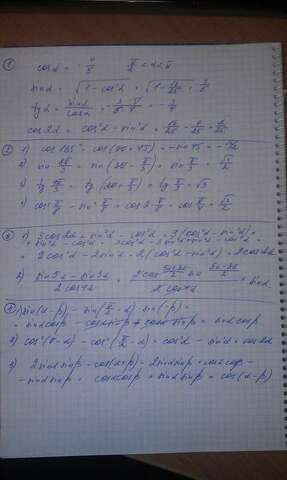 ① cos α = - 4/5   π/2 < α < π
sin α = √(1 - cos²α) = √(1 - 16/25) = 3/5
tg α = sin α / cos α = - 3/4
cos 2α = cos²α - sin²α = 16/25 - 9/25
② 1) cos 135° = cos(90+45) = - sin 45 = - √2/2
2) sin
3) tg = √3
4) cos² π/ - sin² π/ = cos 2 · π/ = cos π/ = √3/2
③ 1) 3 cos 2α + sin²α - cos²α = 3(cos²α - sin²α) +
+ sin²α - cos²α = 3cos²α - 3sin²α + sin²α - cos²α =
= 2cos²α - 2sin²α = 2(cos²α - sin²α) = 2cos 2α
2) sin 5α - sin 3α / 2cos 4α = = sin α
④ 1) sin(α-β) - sin(π/2 - α) sin(-β) =
= sin α cos β - cos α sin β + cos α sin β = sin α cos β
2) cos²(π-α) - cos²(π/2 - α) = cos²α - sin²α = cos 2α
3) 2 sin α sin β + cos(α+β) = 2 sin α sin β + cos α cos β -
- sin α sin β = cos α cos β + sin α sin β = cos(α-β)